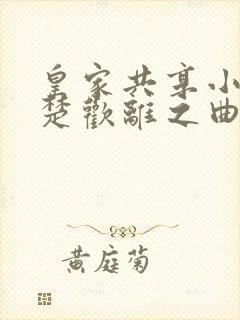 皇家共享小
楚歡離之曲
黃庭菊